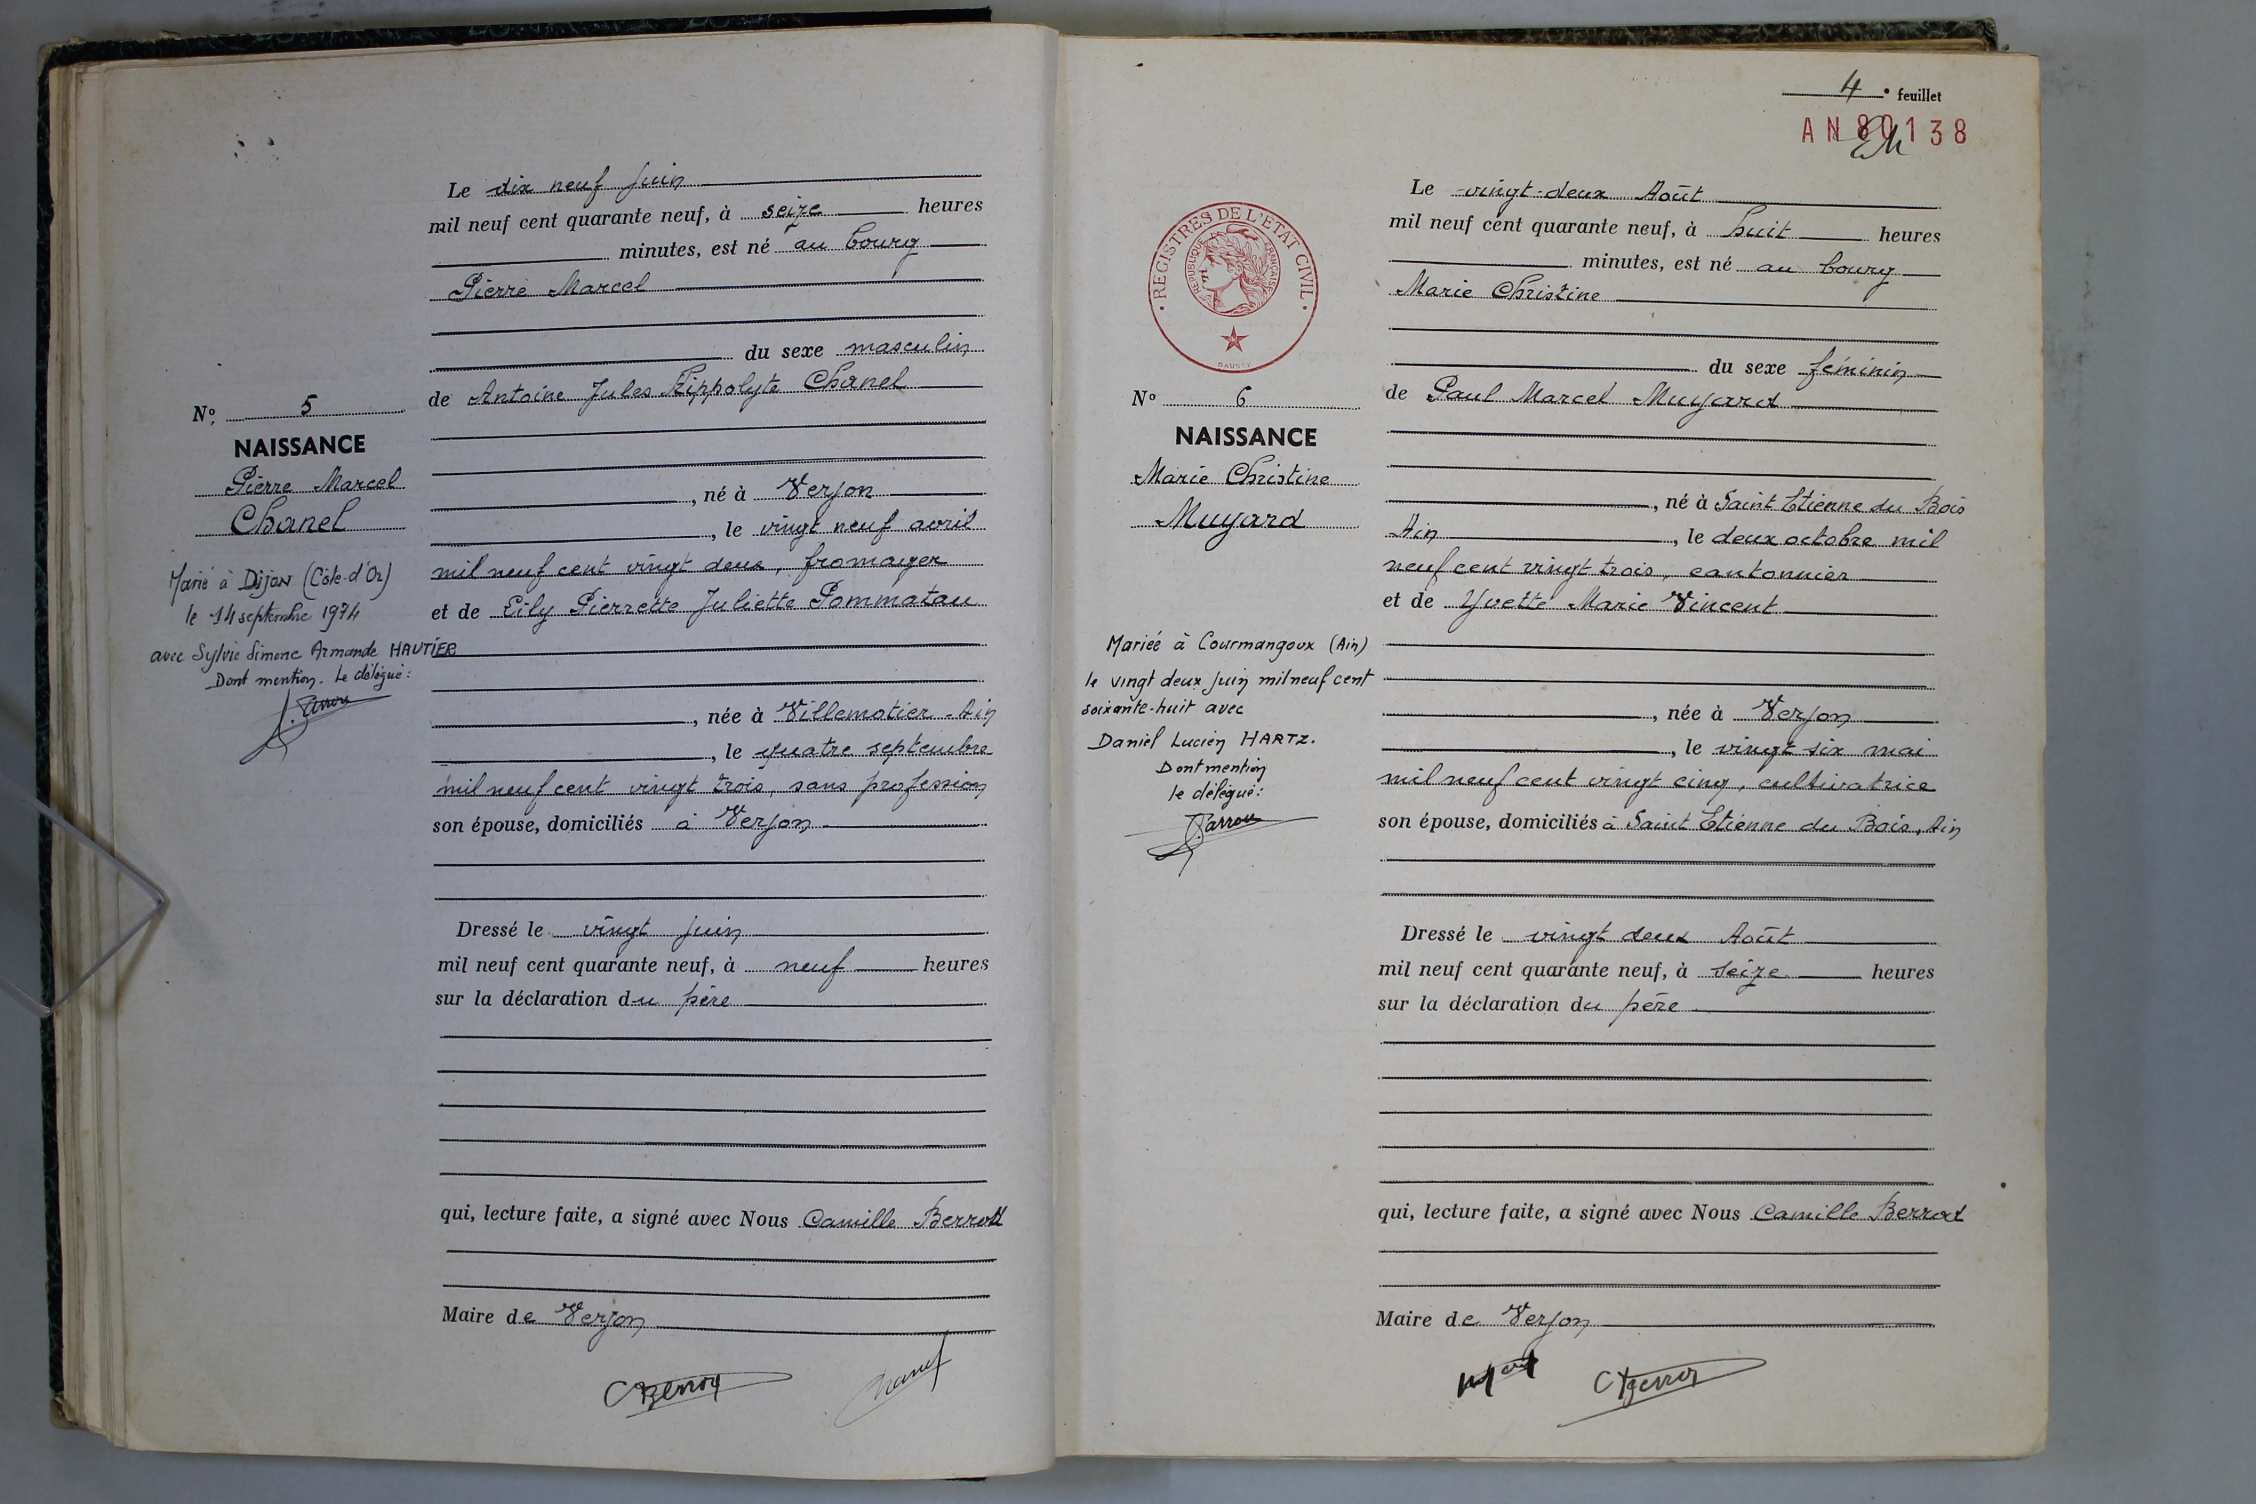 Le dix neuf juin
mil neuf cent quarante neuf, à seize heures
minutes, est né au bourg
Pierre Marcel
du sexe masculin
de Antoine Jules Hippolyte Chanel
, né à Verjon
, le vingt neuf avril
mil neuf cent vingt deux, fromager
et de Pierrette Juliette Pommatau
, née à Villemotier - Ain
, le quatre septembre
mil neuf cent vingt trois, sans profession
son épouse, domiciliés à Verjon
Dressé le vingt juin
mil neuf cent quarante neuf, à neuf heures
sur la déclaration du père
qui, lecture faite, a signé avec Nous Camille Berrod
Maire de Verjon
N° 5
NAISSANCE
Pierre Marcel
Chanel
Marié à Dijon (Côte-d'Or)
le 14 septembre 1974
avec Sylvie Simone Armande HAUTIER
Dont mention. Le délégué:
4e feuillet
AN 80138
REGISTRES DE L'ETAT CIVIL
REPUBLIQUE FRANÇAISE
Le vingt-deux Août
mil neuf cent quarante neuf, à huit heures
minutes, est né au bourg
Marie Christine
du sexe féminin
de Paul Marcel Muyard
, né à Saint Etienne du Bois
Ain, le deux octobre mil
neuf cent vingt trois, cantonnier
et de Yvette Marie Vincent
, née à Verjon
, le vingt six mai
mil neuf cent vingt cinq, cultivatrice
son épouse, domiciliés à Saint Etienne du Bois, Ain
Dressé le vingt deux Août
mil neuf cent quarante neuf, à seize heures
sur la déclaration du père
qui, lecture faite, a signé avec Nous Camille Berrod
Maire de Verjon
N° 6
NAISSANCE
Marie Christine
Muyard
Mariée à Courmangoux (Ain)
le vingt deux juin mil neuf cent
soixante-huit avec
Daniel Lucien HARTZ.
Dont mention
le délégué: